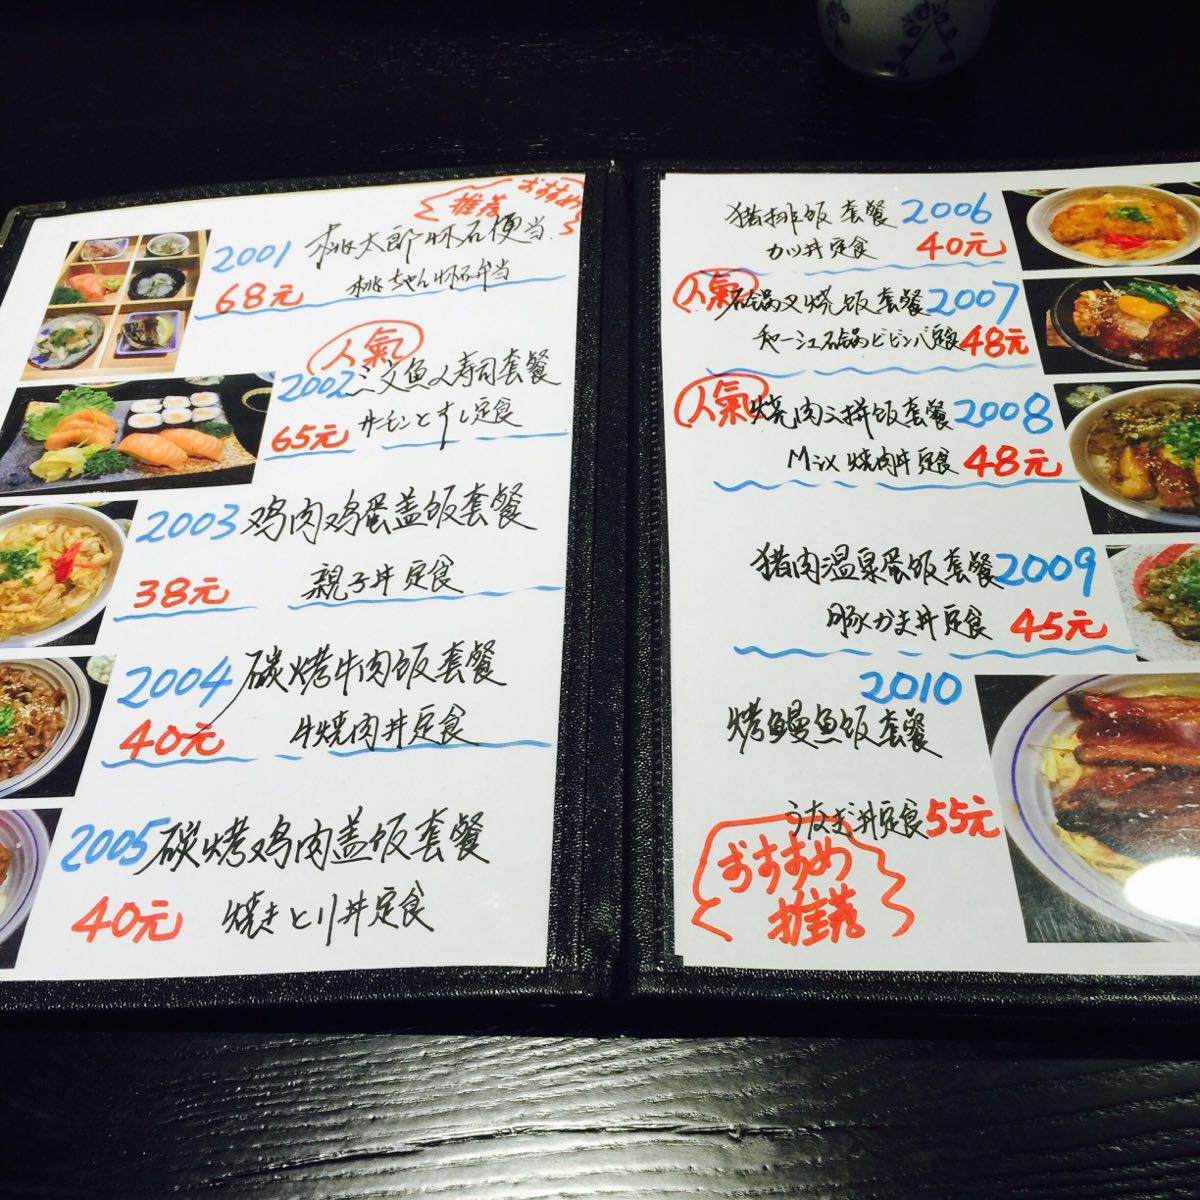 推荐 おすすめ
2001 桃太郎怀石便当
68元 桃ちゃん怀石弁当
人氣
2002 三文鱼寿司套餐
65元 サーモンとすし定食
2003 鸡肉鸡蛋盖饭套餐
38元 親子丼定食
2004 碳烤牛肉饭套餐
40元 牛焼肉丼定食
2005 碳烤鸡肉盖饭套餐
40元 焼きとり丼定食
猪排饭套餐 2006
カツ丼定食 40元
人氣 石锅叉烧饭套餐 2007
石锅ビビンバ定食 48元
人氣 烧肉三拼饭套餐 2008
Mix 焼肉丼定食 48元
猪肉温泉蛋饭套餐 2009
豚かま丼定食 45元
2010
烤鳗鱼饭套餐
うなぎ丼定食 55元
おすすめ
推荐